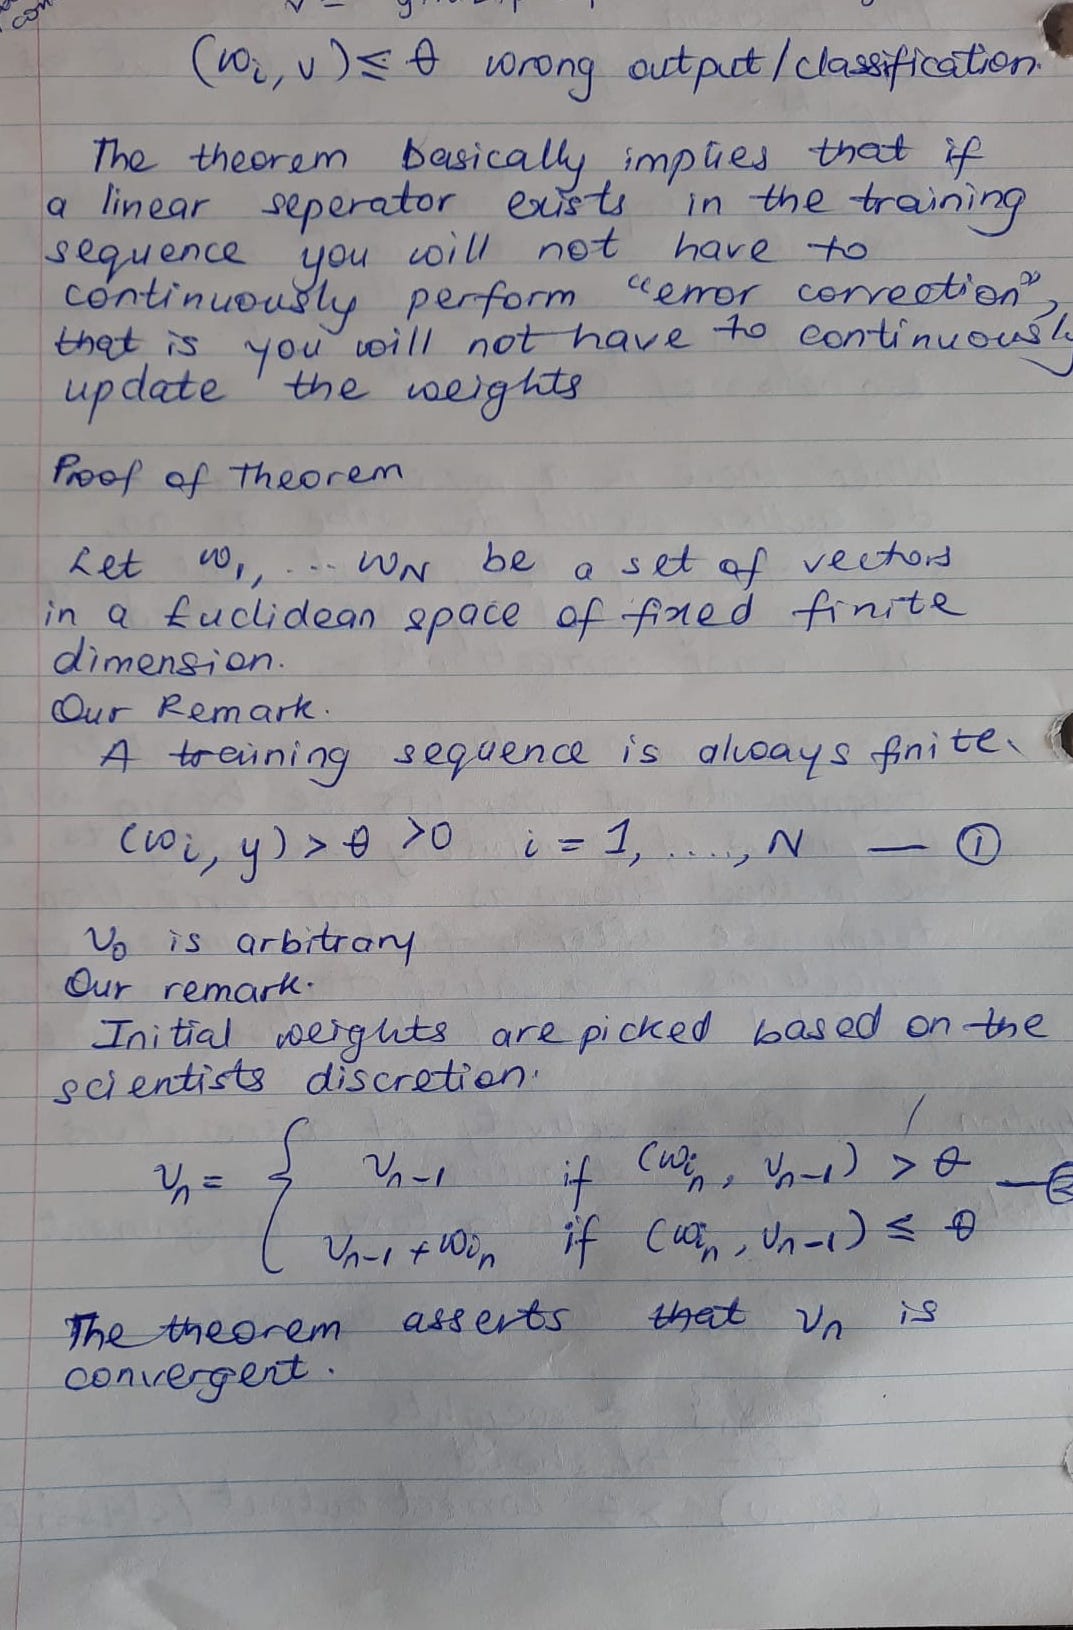 (wi, v) ≤ θ wrong output/classification.
The theorem basically implies that if
a linear seperator exists in the training
sequence you will not have to
continuously perform "error correction",
that is you will not have to continuously
update the weights
Proof of Theorem
Let w1, ... wN be a set of vectors
in a Euclidean space of fixed finite
dimension.
Our Remark.
A training sequence is always finite.
(wi, y) > θ > 0 i = 1, ...., N — ①
v0 is arbitrary
Our remark.
Initial weights are picked based on the
scientists discretion.
vn = { vn-1 if (win, vn-1) > θ
vn-1 + win if (win, vn-1) ≤ θ
The theorem asserts that vn is
convergent.